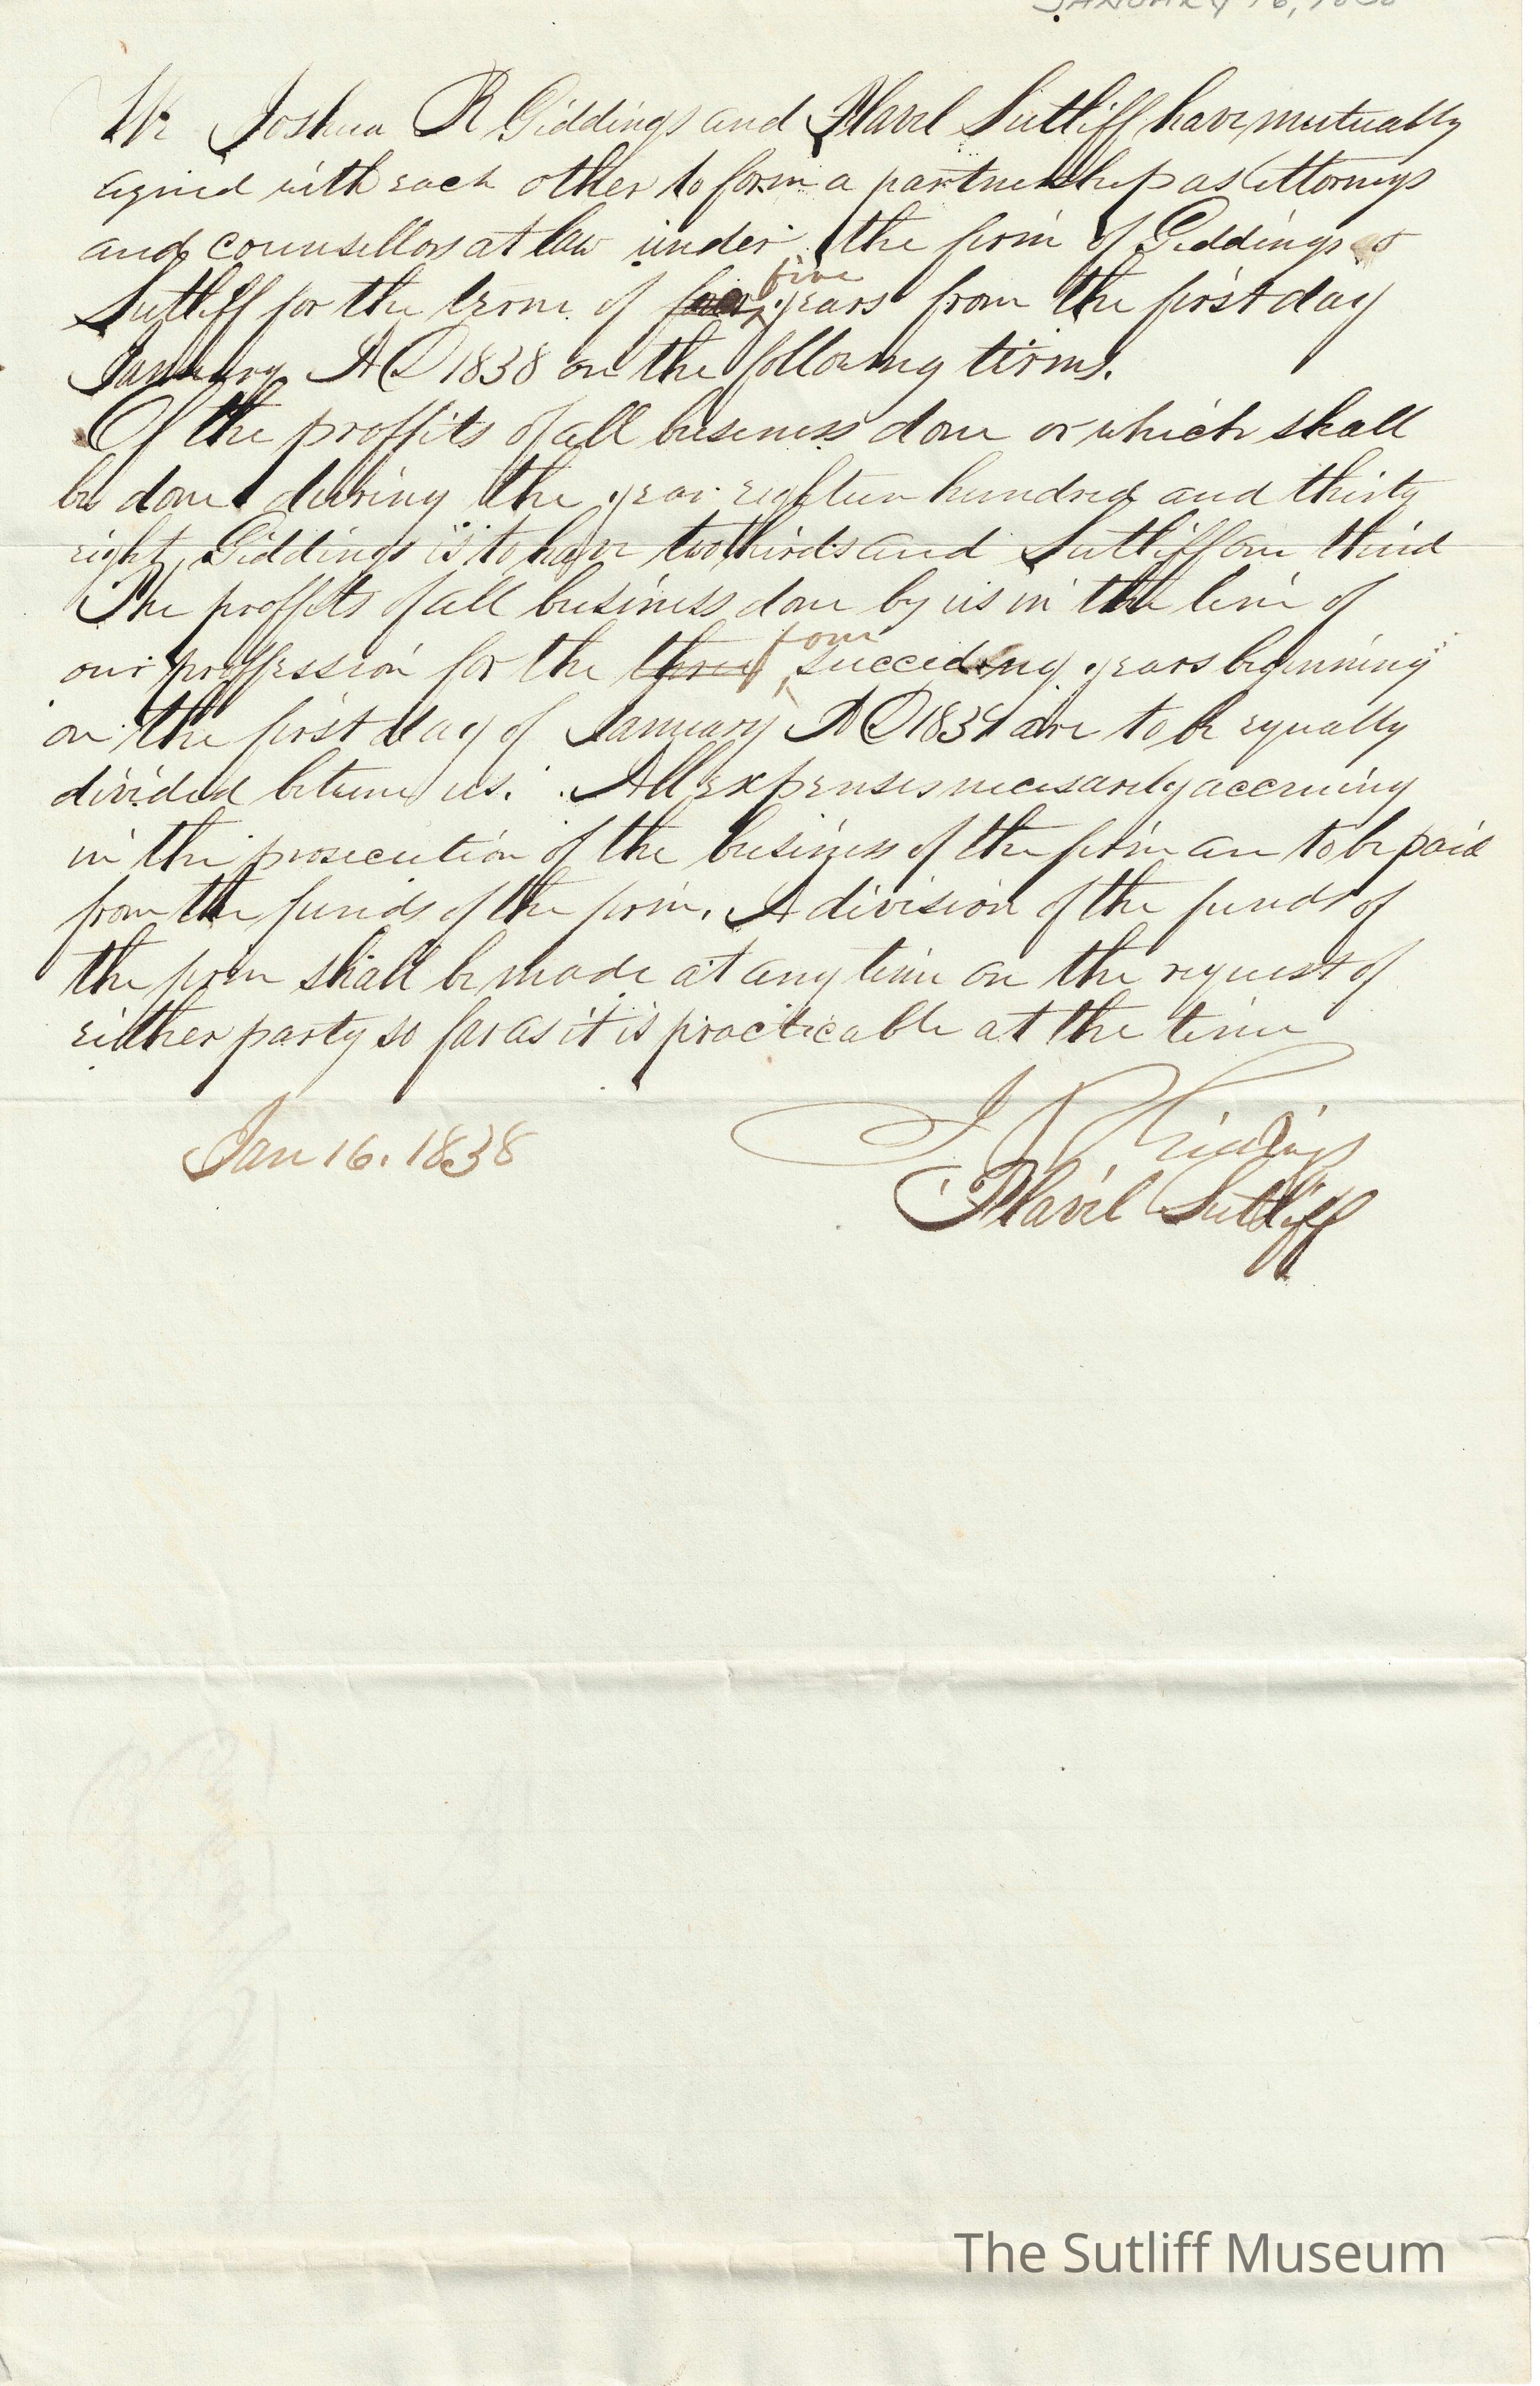 JANUARY 16, 1838
We Joshua R Giddings and Flavel Sutliff have mutually
agreed with each other to form a partnership as Attorneys
and counsellors at law under the firm of Giddings &
Sutliff for the term of four five years from the first day
January A D 1838 on the following terms.
Of the proffits of all business done or which shall
be done during the year eighteen hundred and thirty
eight, Giddings is to have two thirds and Sutliff one third
The proffits of all business done by us in the line of
our proffession for the three four succeeding years beginning
on the first day of January A D 1839 are to be equally
divided between us. All expenses necessarily accruing
in the prosecution of the business of the firm are to be paid
from the funds of the firm. A division of the funds of
the firm shall be made at any time on the request of
either party so far as it is practicable at the time
Jan 16. 1838
J R Giddings
Flavel Sutliff
The Sutliff Museum